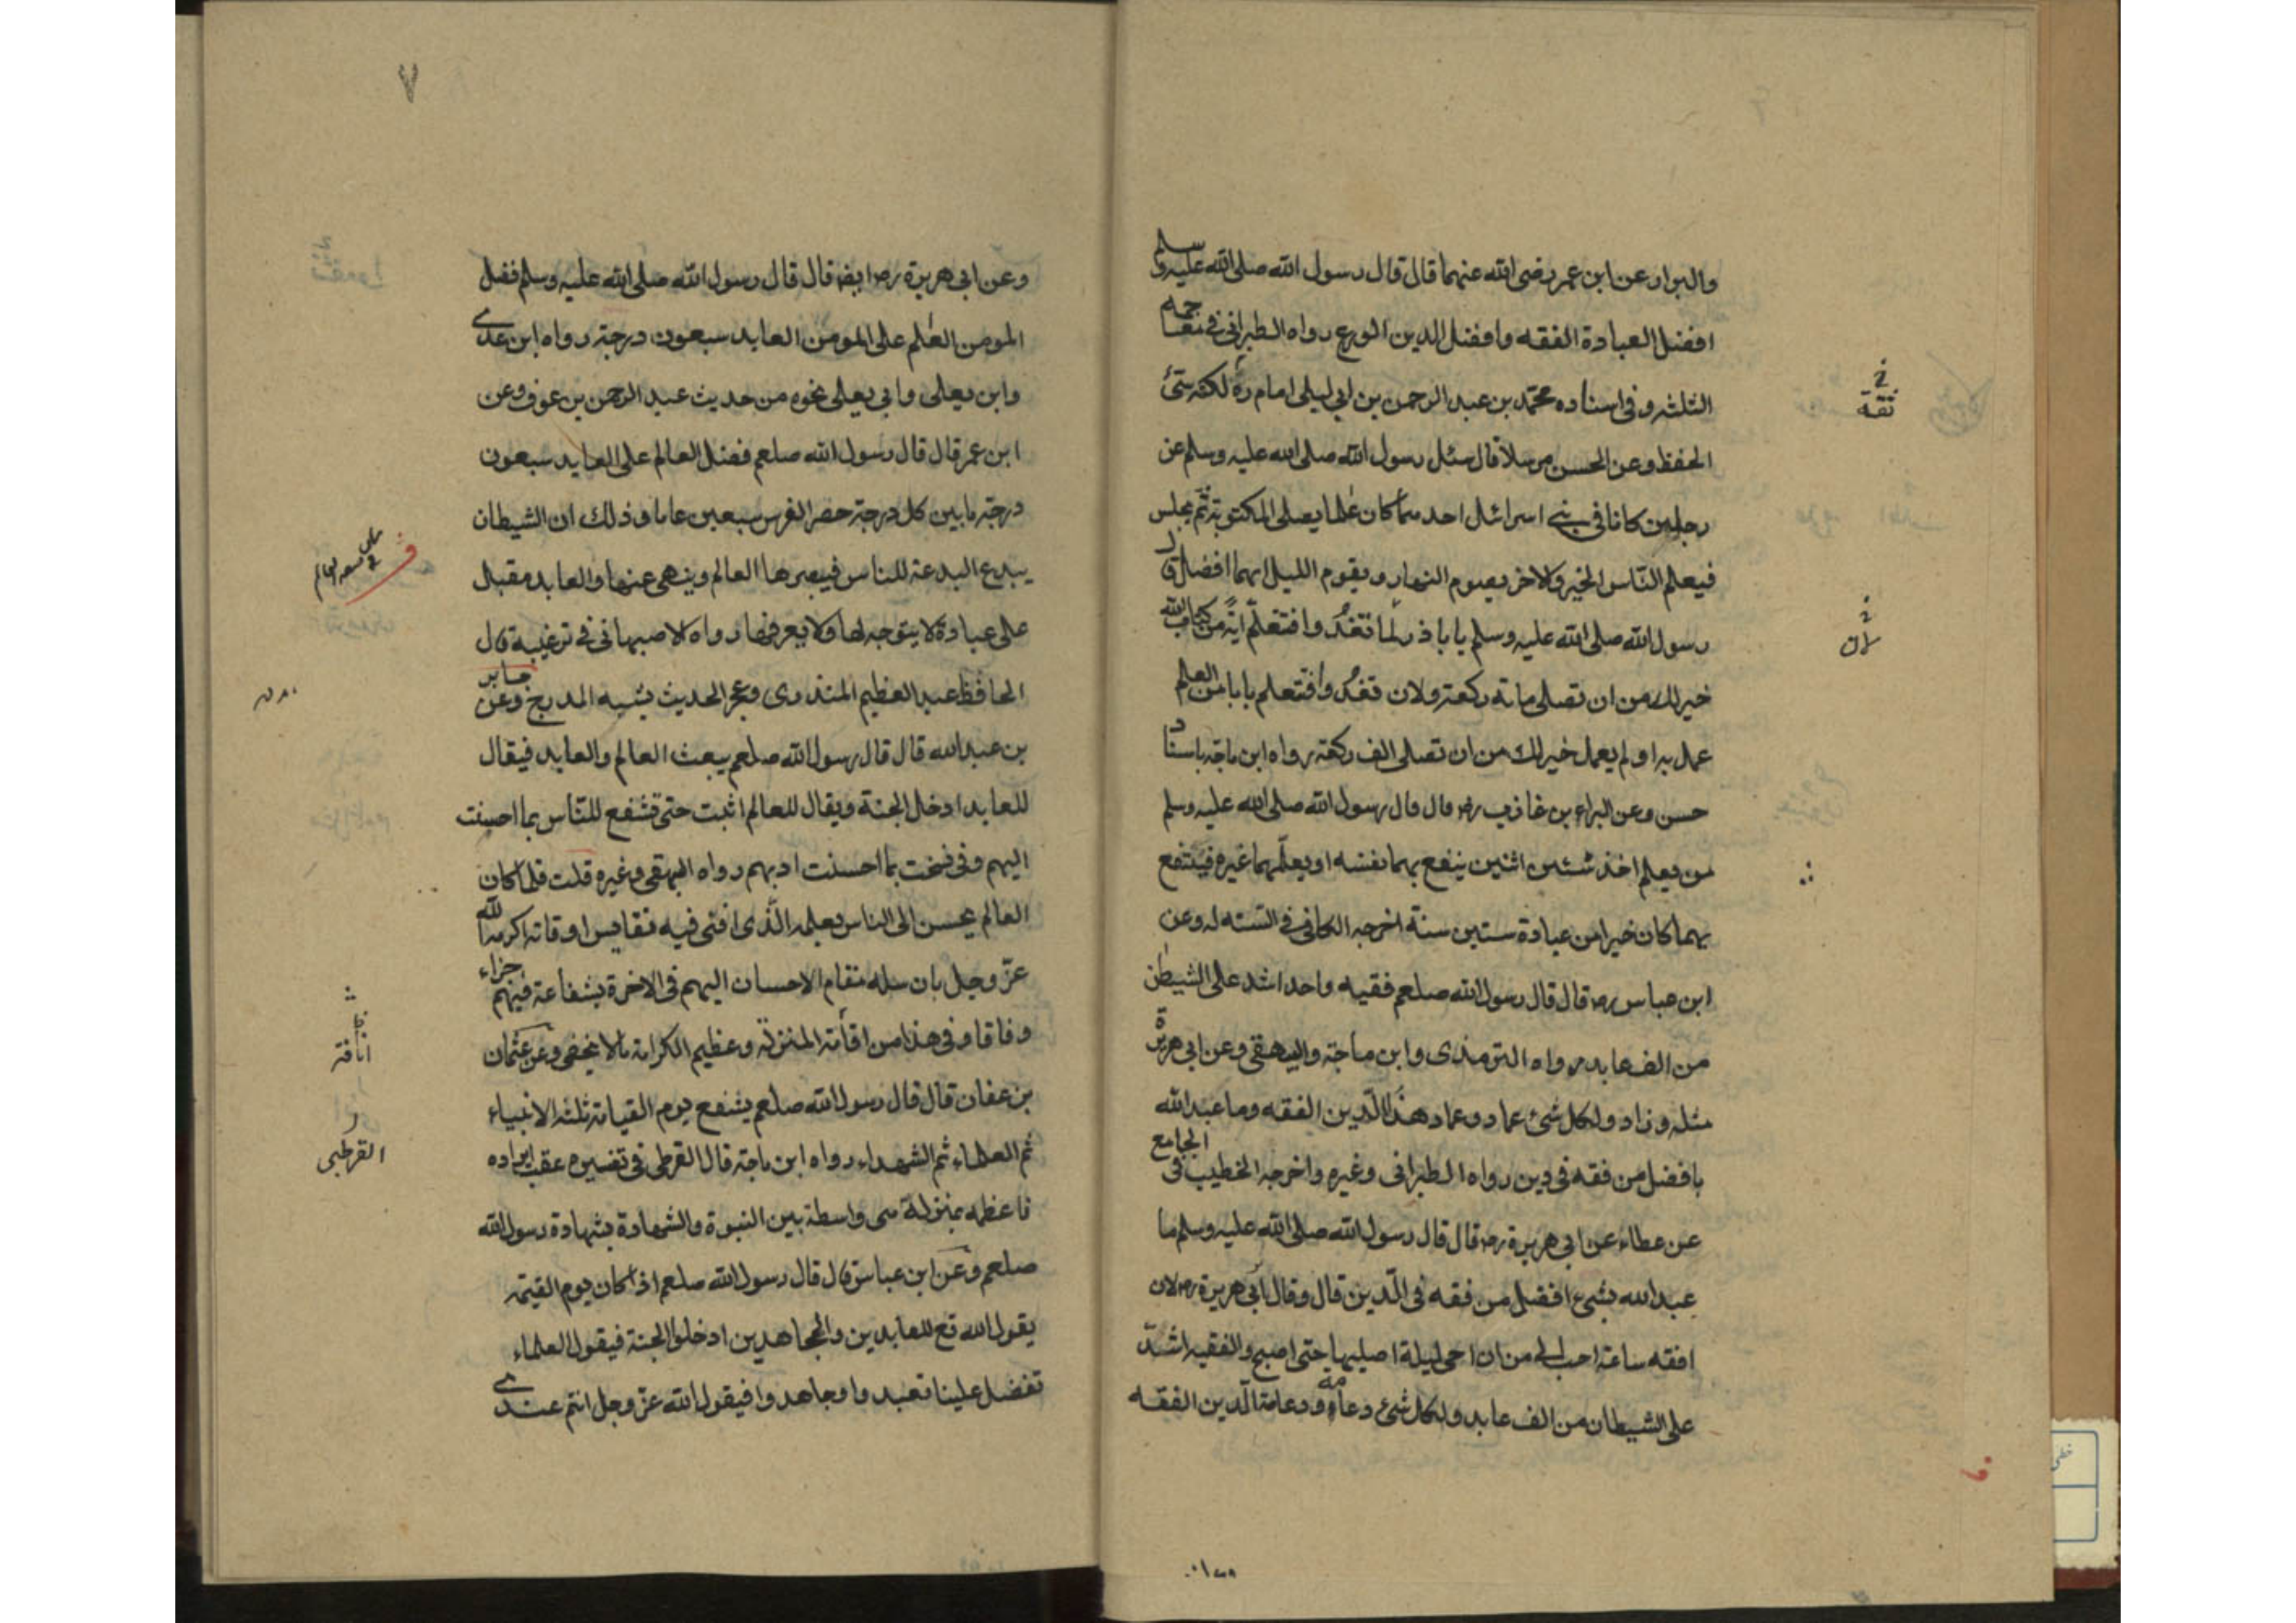 والبزار عن ابن عمر رضى الله عنهما قال قال رسول الله صلى الله عليه وسلم
افضل العبادة الفقه وافضل الدين الورع رواه الطبرانى فى معاجمه
الثلثه وفى اسناده محمد بن عبد الرحمن بن ابى ليلى امام لكنه سئ
الحفظ وعن الحسن مرسلا قال سئل رسول الله صلى الله عليه وسلم عن
رجلين كانا فى بنى اسرائل احدهما كان عالما يصلى المكتوبة ثم يجلس
فيعلم الناس الخير والاخر يصوم النهار ويقوم الليل ايهما افضل قال
رسول الله صلى الله عليه وسلم يا باذر لما تغد وافتعلم اية من كتاب الله
خير لك من ان تصلى ماتة ركعة ولان تغد وافتعلم بابا من العلم
عمل به او لم يعمل خير لك من ان تصلى الف ركعة رواه ابن ماجة باسناد
حسن وعن البراء بن غازب رض قال قال رسول الله صلى الله عليه وسلم
من يعلم اخذ شئين اثنين ينفع بهما نفسه او يعلمهما غيره فينتفع
بهما كان خيرا من عبادة ستين سنة اخرجه الكافى فى له وعن
ابن عباس رض قال قال رسول الله صلعم فقيه واحد اشد على الشيطن
من الف عابد رواه الترمذى وابن ماجة والبيهقى وعن ابى هريرة
مثله وزاد ولكل شئ عماد وعماد هذا الدين الفقه وما عبد الله
بافضل من فقه فى دين رواه الطبرانى وغيره واخرجه الخطيب فى الجامع
عن عطاء عن ابى هريرة رض قال قال رسول الله صلى الله عليه وسلم ما
عبد الله بشئ افضل من فقه فى الدين قال وقال ابى هريرة رض لان
افقه ساعة احب الى من ان احى ليلة اصليها حتى اصبح والفقيه اشد
على الشيطان من الف عابد ولكل شئ دعامة ودعامة الدين الفقه
ثقة
لان
٧
وعن ابى هريرة رض ايضا قال قال رسول الله صلى الله عليه وسلم فضل
المومن العالم على المومن العابد سبعون درجة رواه ابن عدى
وابن يعلى وابى يعلى نحوه من حديث عبد الرحمن بن عوف وعن
ابن عمر قال قال رسول الله صلعم فضل العالم على العابد سبعون
درجة ما بين كل درجة حضر الفرس سبعين عاما وذلك ان الشيطان
يبدع البدعة للناس فيبصرها العالم وينهى عنها والعابد مقبل
على عبادة لا يتوجه لها ولا يعرفها رواه الاصبهانى فى ترغيبة قال
الحافظ عبد العظيم المنذرى وعجز الحديث يشبه المدرج وعن جابر
بن عبد الله قال قال رسول الله صلعم يبعث العالم والعابد فيقال
للعابد ادخل الجنة ويقال للعالم اثبت حتى تشفع للناس بما احسنت
اليهم وفى نسخت بما احسنت ادبهم رواه البهقى وغيره قلت فلما كان
العالم يحسن الى الناس بعلمه الذى افنى فيه نفايس اوقاته اكرمه الله
عز وجل بان سله مقام الاحسان اليهم فى الاخرة بشفاعة فيهم جزاء
وفاقا وفى هذا من اقأمة المنزلة وعظيم الكرامة مالا يخفى وعن عثمان
بن عفان قال قال رسول الله صلعم يشفع يوم القيامة ثلثة الانبياء
ثم العلماء ثم الشهداء رواه ابن ماجة قال القرطى فى تفسيره عقب ايراده
فاعظم بمنزلة هى واسطة بين النبوة والشهادة بشهادة رسول الله
صلعم وعن ابن عباس قال قال رسول الله صلعم اذا كان يوم القيمة
يقول الله تع للعابدين والمجاهدين ادخلوا الجنة فيقول العلماء
تفضل علينا تعبدوا وجاهدوا فيقول الله عز وجل انتم عندى
انافة
القرطبى